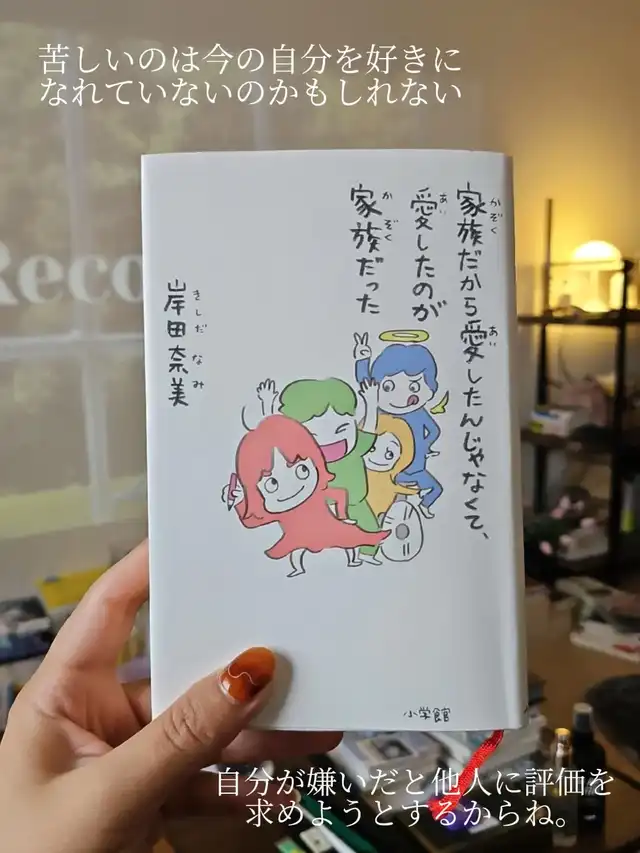 苦しいのは今の自分を好きに
なれていないのかもしれない
Reco
家族だから愛したんじゃなくて、
かぞく
あい
愛したのが
あい
家族だった
かぞく
岸田奈美
きしだなみ
小学館
自分が嫌いだと他人に評価を
求めようとするからね。